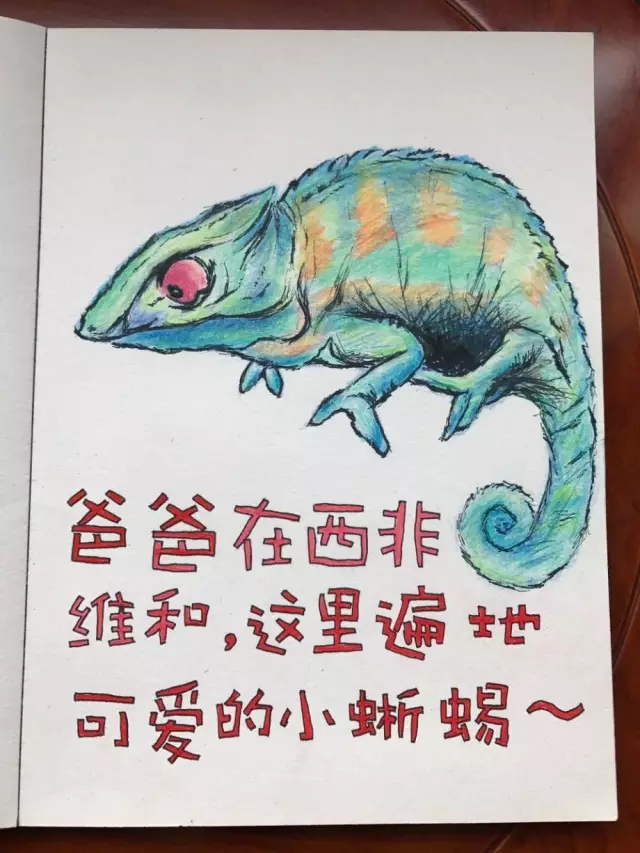 爸爸在西非
维和,这里遍地
可爱的小蜥蜴～